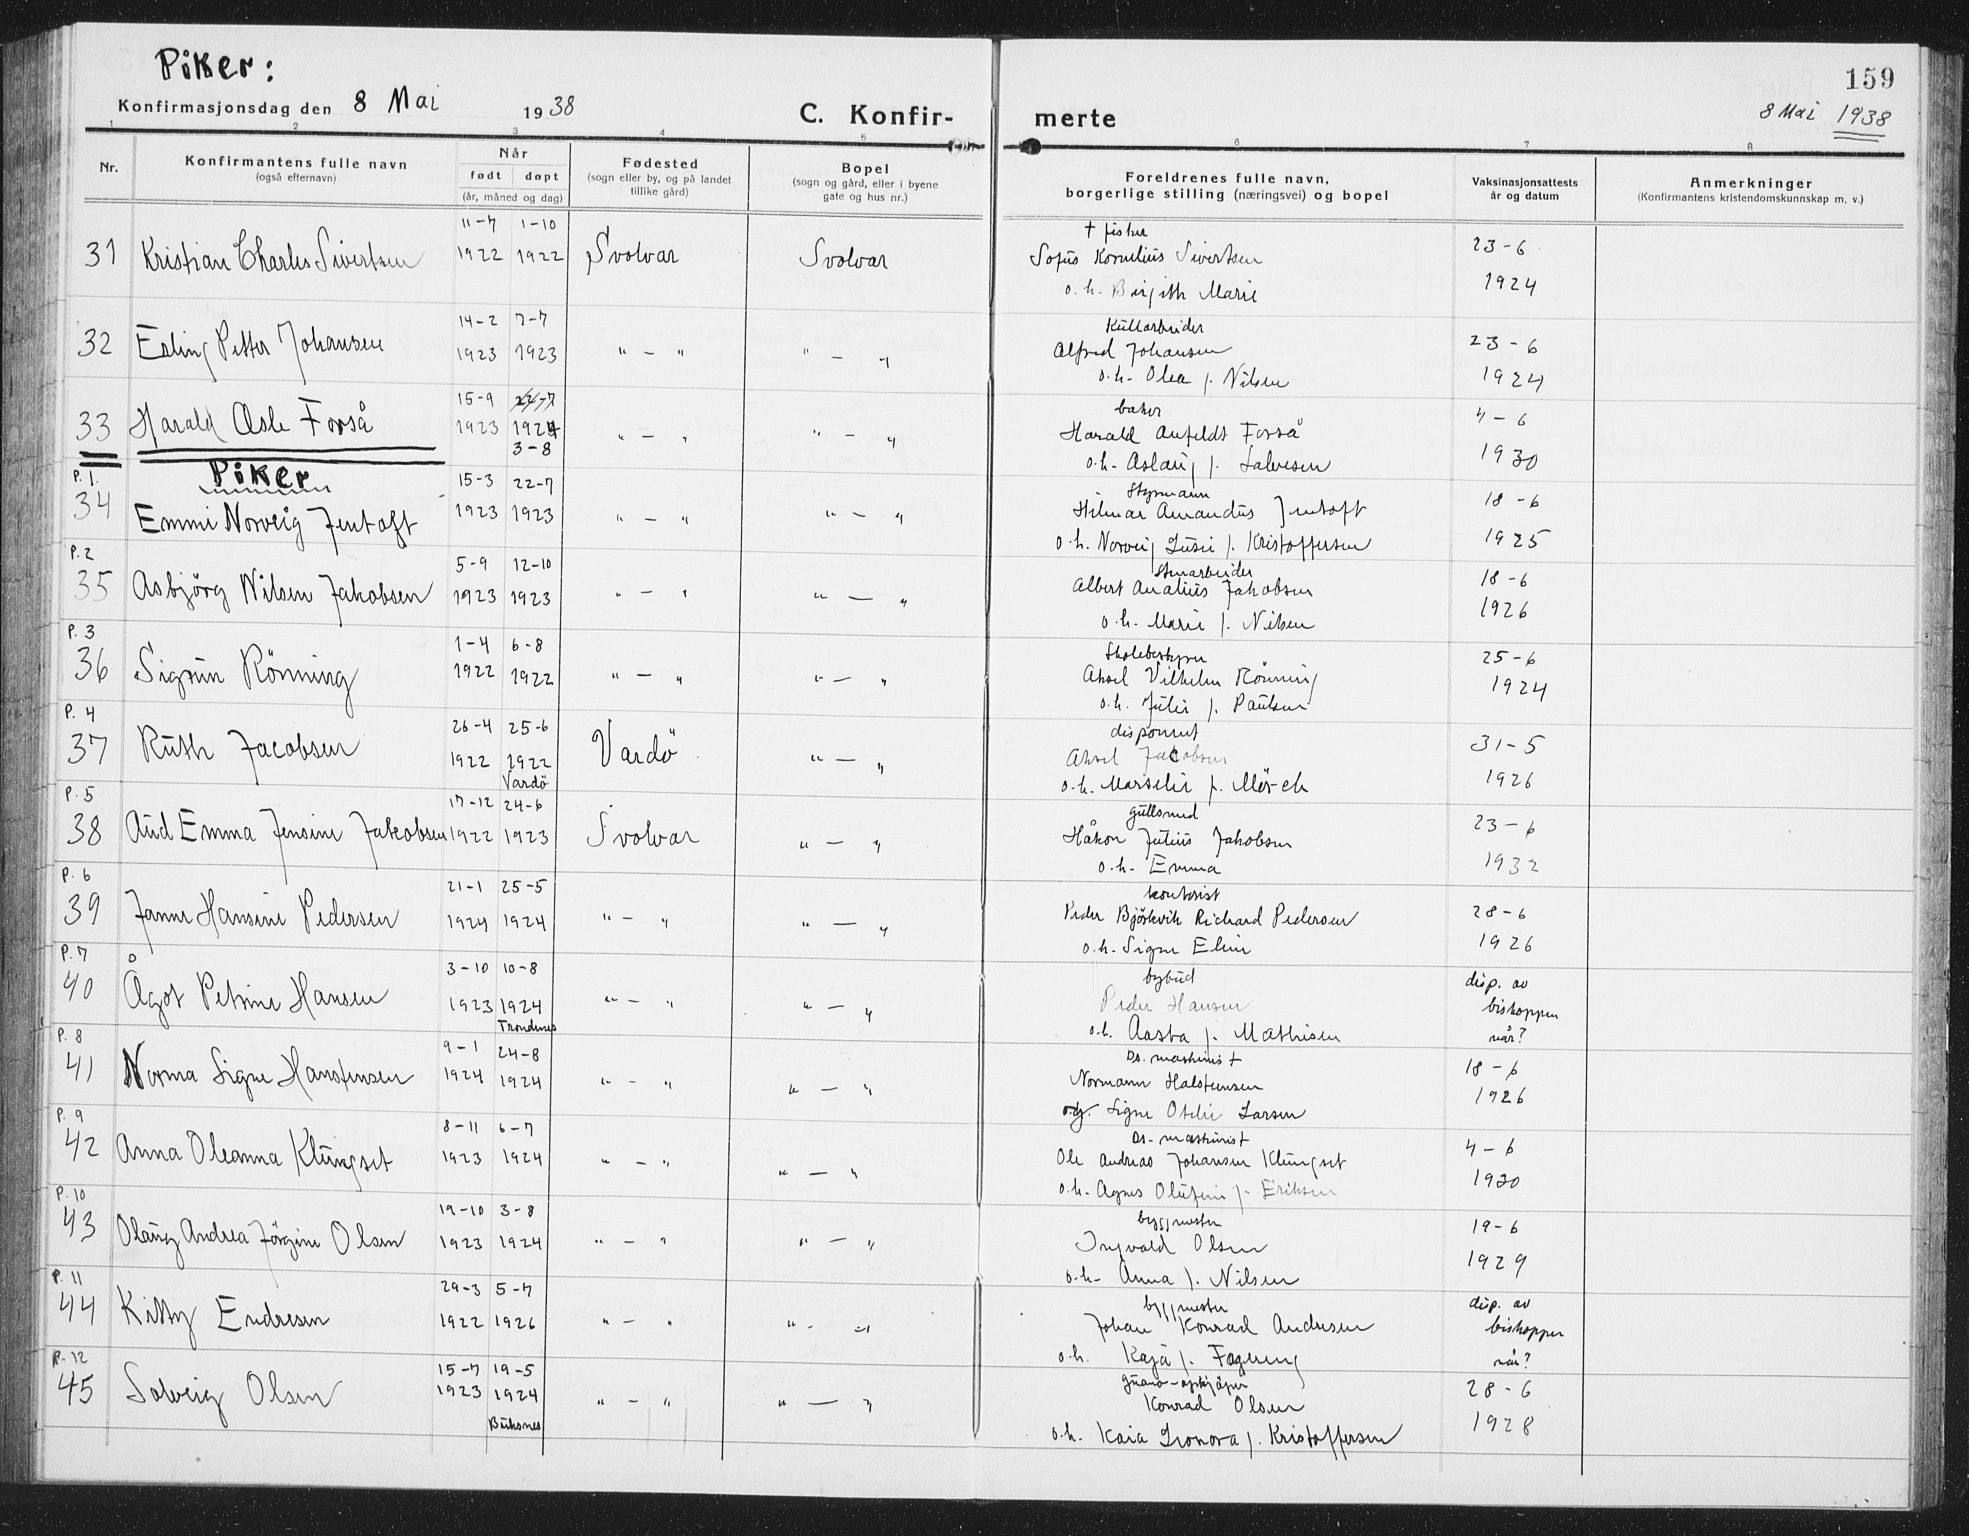 Piker:
Konfirmasjonsdag den 8 Mai 1938
C. Konfirmerte
159
8 Mai 1938
1 2 3 4 5 6 7 8
Nr.
Konfirmantens fulle navn
(også efternavn)
Når
født døpt
(år, måned og dag)
Fødested
(sogn eller by, og på landet
tillike gård)
Bopel
(sogn og gård, eller i byene
gate og hus nr.)
Foreldrenes fulle navn,
borgerlige stilling (næringsvei) og bopel
Vaksinasjonsattests
år og datum
Anmerkninger
(Konfirmantens kristendomskunnskap m. v.)
11-7 1-10 † fisker
31 Kristian Charles Sivertsen 1922 1922 Svolvær Svolvær Sofus Kornelius Sivertsen 23-6
o. h. Birgith Marie 1924
14-2 7-7 Kullarbeider
32 Erling Petter Johansen 1923 1923 " - " " - " Alfred Johansen 23-6
o. h. Olea f. Nilsen 1924
15-9 22-7 baker
33 Harald Asle Forså 1923 1924 " - " " - " Harald Anfeldt Forså 4-6
3-8 o. h. Aslaug f. Salvesen 1930
Piker
P. 1. 15-3 22-7 Styrmann
34 Emmi Norveig Jentoft 1923 1923 " - " " - " Hilmar Amandus Jentoft 18-6
o. h. Norveig Lusie f. Kristoffersen 1925
P. 2 5-9 12-10 Stenarbeider
35 Asbjörg Nilsen Jakobsen 1923 1923 " - " " - " Albert Analius Jakobsen 18-6
o. h. Marie f. Nilsen 1926
P. 3 1-4 6-8 Skolebestyrer
36 Sigrun Rönning 1922 1922 " - " " - " Aksel Vilhelm Rönning 25-6
o. h. Julie f. Paulsen 1924
P. 4 26-4 25-6 disponent
37 Ruth Jacobsen 1922 1922 Vardö " - " Aksel Jacobsen 31-5
Vardö o. h. Marselie f. Mörch 1926
P. 5 17-12 24-6 gullsmed
38 Aud Emma Jensine Jakobsen 1922 1923 Svolvær " - " Håkon Julius Jakobsen 23-6
o. h. Emma 1932
P. 6 21-1 25-5 kontorist
39 Janne Hansine Pedersen 1924 1924 " - " " - " Peder Björkvik Richard Pedersen 28-6
o. h. Signe Elin 1926
P. 7 3-10 10-8 bybud
40 Ågot Petrine Hansen 1923 1924 " - " " - " Peder Hansen disp. av biskoppen
Trondenes o. h. Aasta f. Mathisen når?
P. 8 9-1 24-8 Ds. maskinist
41 Norma Signe Hanstensen 1924 1924 " - " " - " Normann Halstensen 18-6
og Signe Otelie Larsen 1926
P. 9 8-11 6-7 Ds. maskinist
42 Anna Oleanna Klungset 1923 1924 " - " " - " Ole Andreas Johansen Klungset 4-6
o. h. Agnes Olufine f. Eriksen 1930
P. 10 19-10 3-8 byggmester
43 Olaug Andrea Jörgine Olsen 1923 1924 " - " " - " Ingvald Olsen 19-6
o. h. Anna f. Nilsen 1929
P. 11 29-3 5-7 byggmester
44 Kitty Endresen 1922 1926 " - " " - " Johan Konrad Andresen disp. av biskoppen
o. h. Kaja f. Fagereng når?
P. 12 15-7 19-5 guano-opkjöper
45 Solveig Olsen 1923 1924 " - " " - " Konrad Olsen 28-6
Buksnes o. h. Kaia Leonora f. Kristoffersen 1928